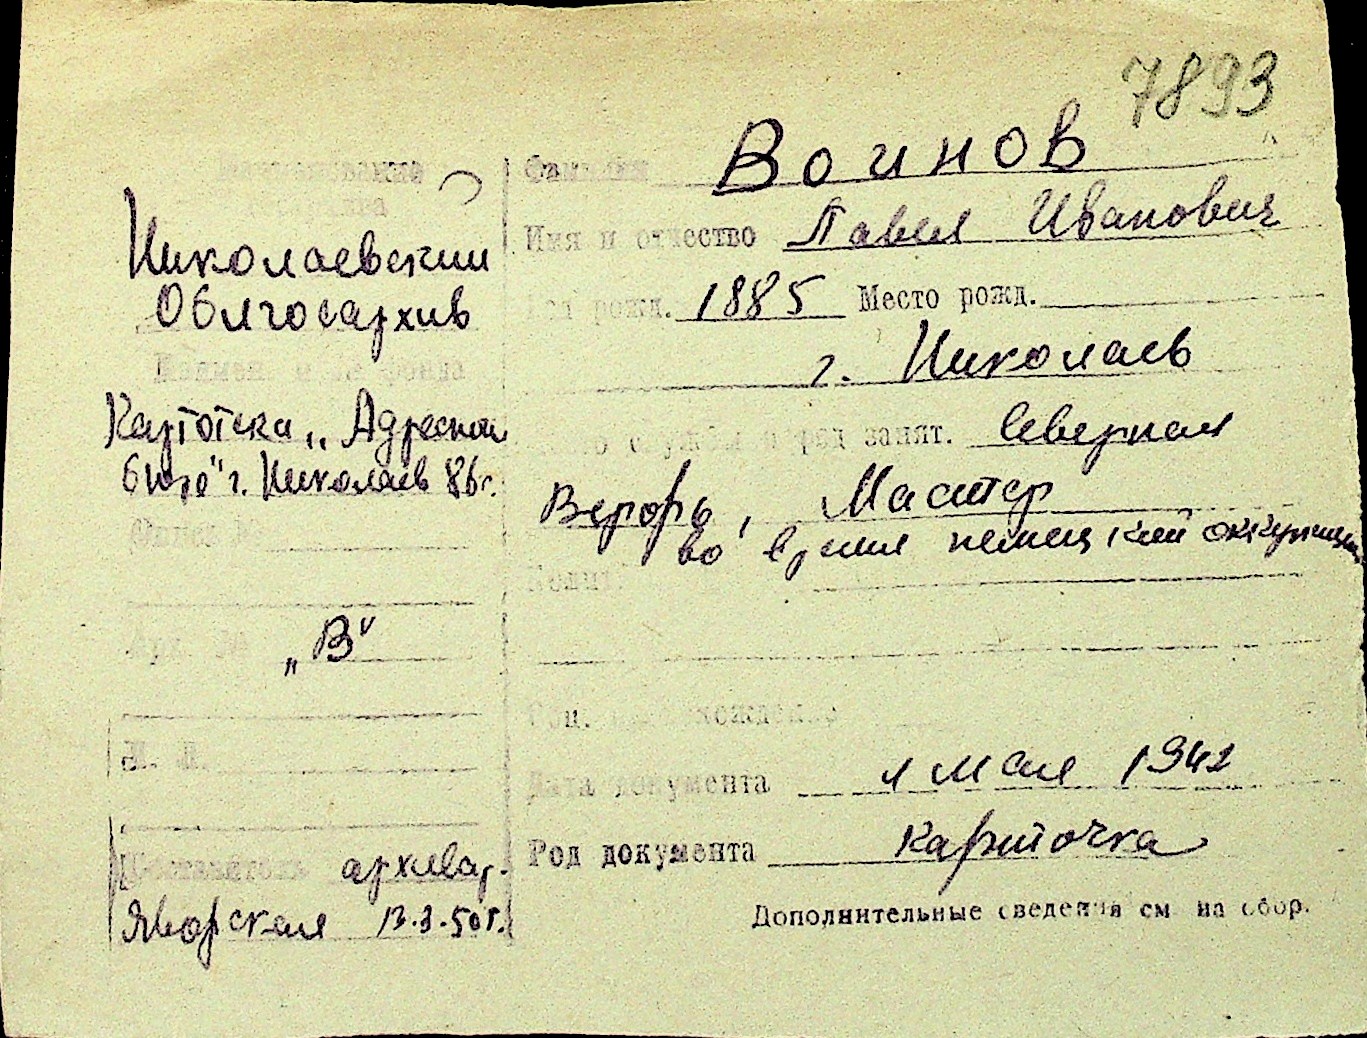 7893
Наименование
госархива
Николаевский
Облгосархив
Наимен. и № фонда
Картотека „Адресное
бюро" г. Николаев 86г.
Опись №
Арх. №
„В"
К. Л.
Составитель архивар.
Яворская 13.3.50г.
Фамилия Воинов
Имя и отчество Павел Иванович
Год рожд. 1885 Место рожд.
г. Николаев
Место службы и род занят. Северная
Верфь, Мастер
во время немецкой оккупации
Полит.
Соц. происхождение
Дата документа 1 мая 1942
Род документа карточка
Дополнительные сведения см на обор.